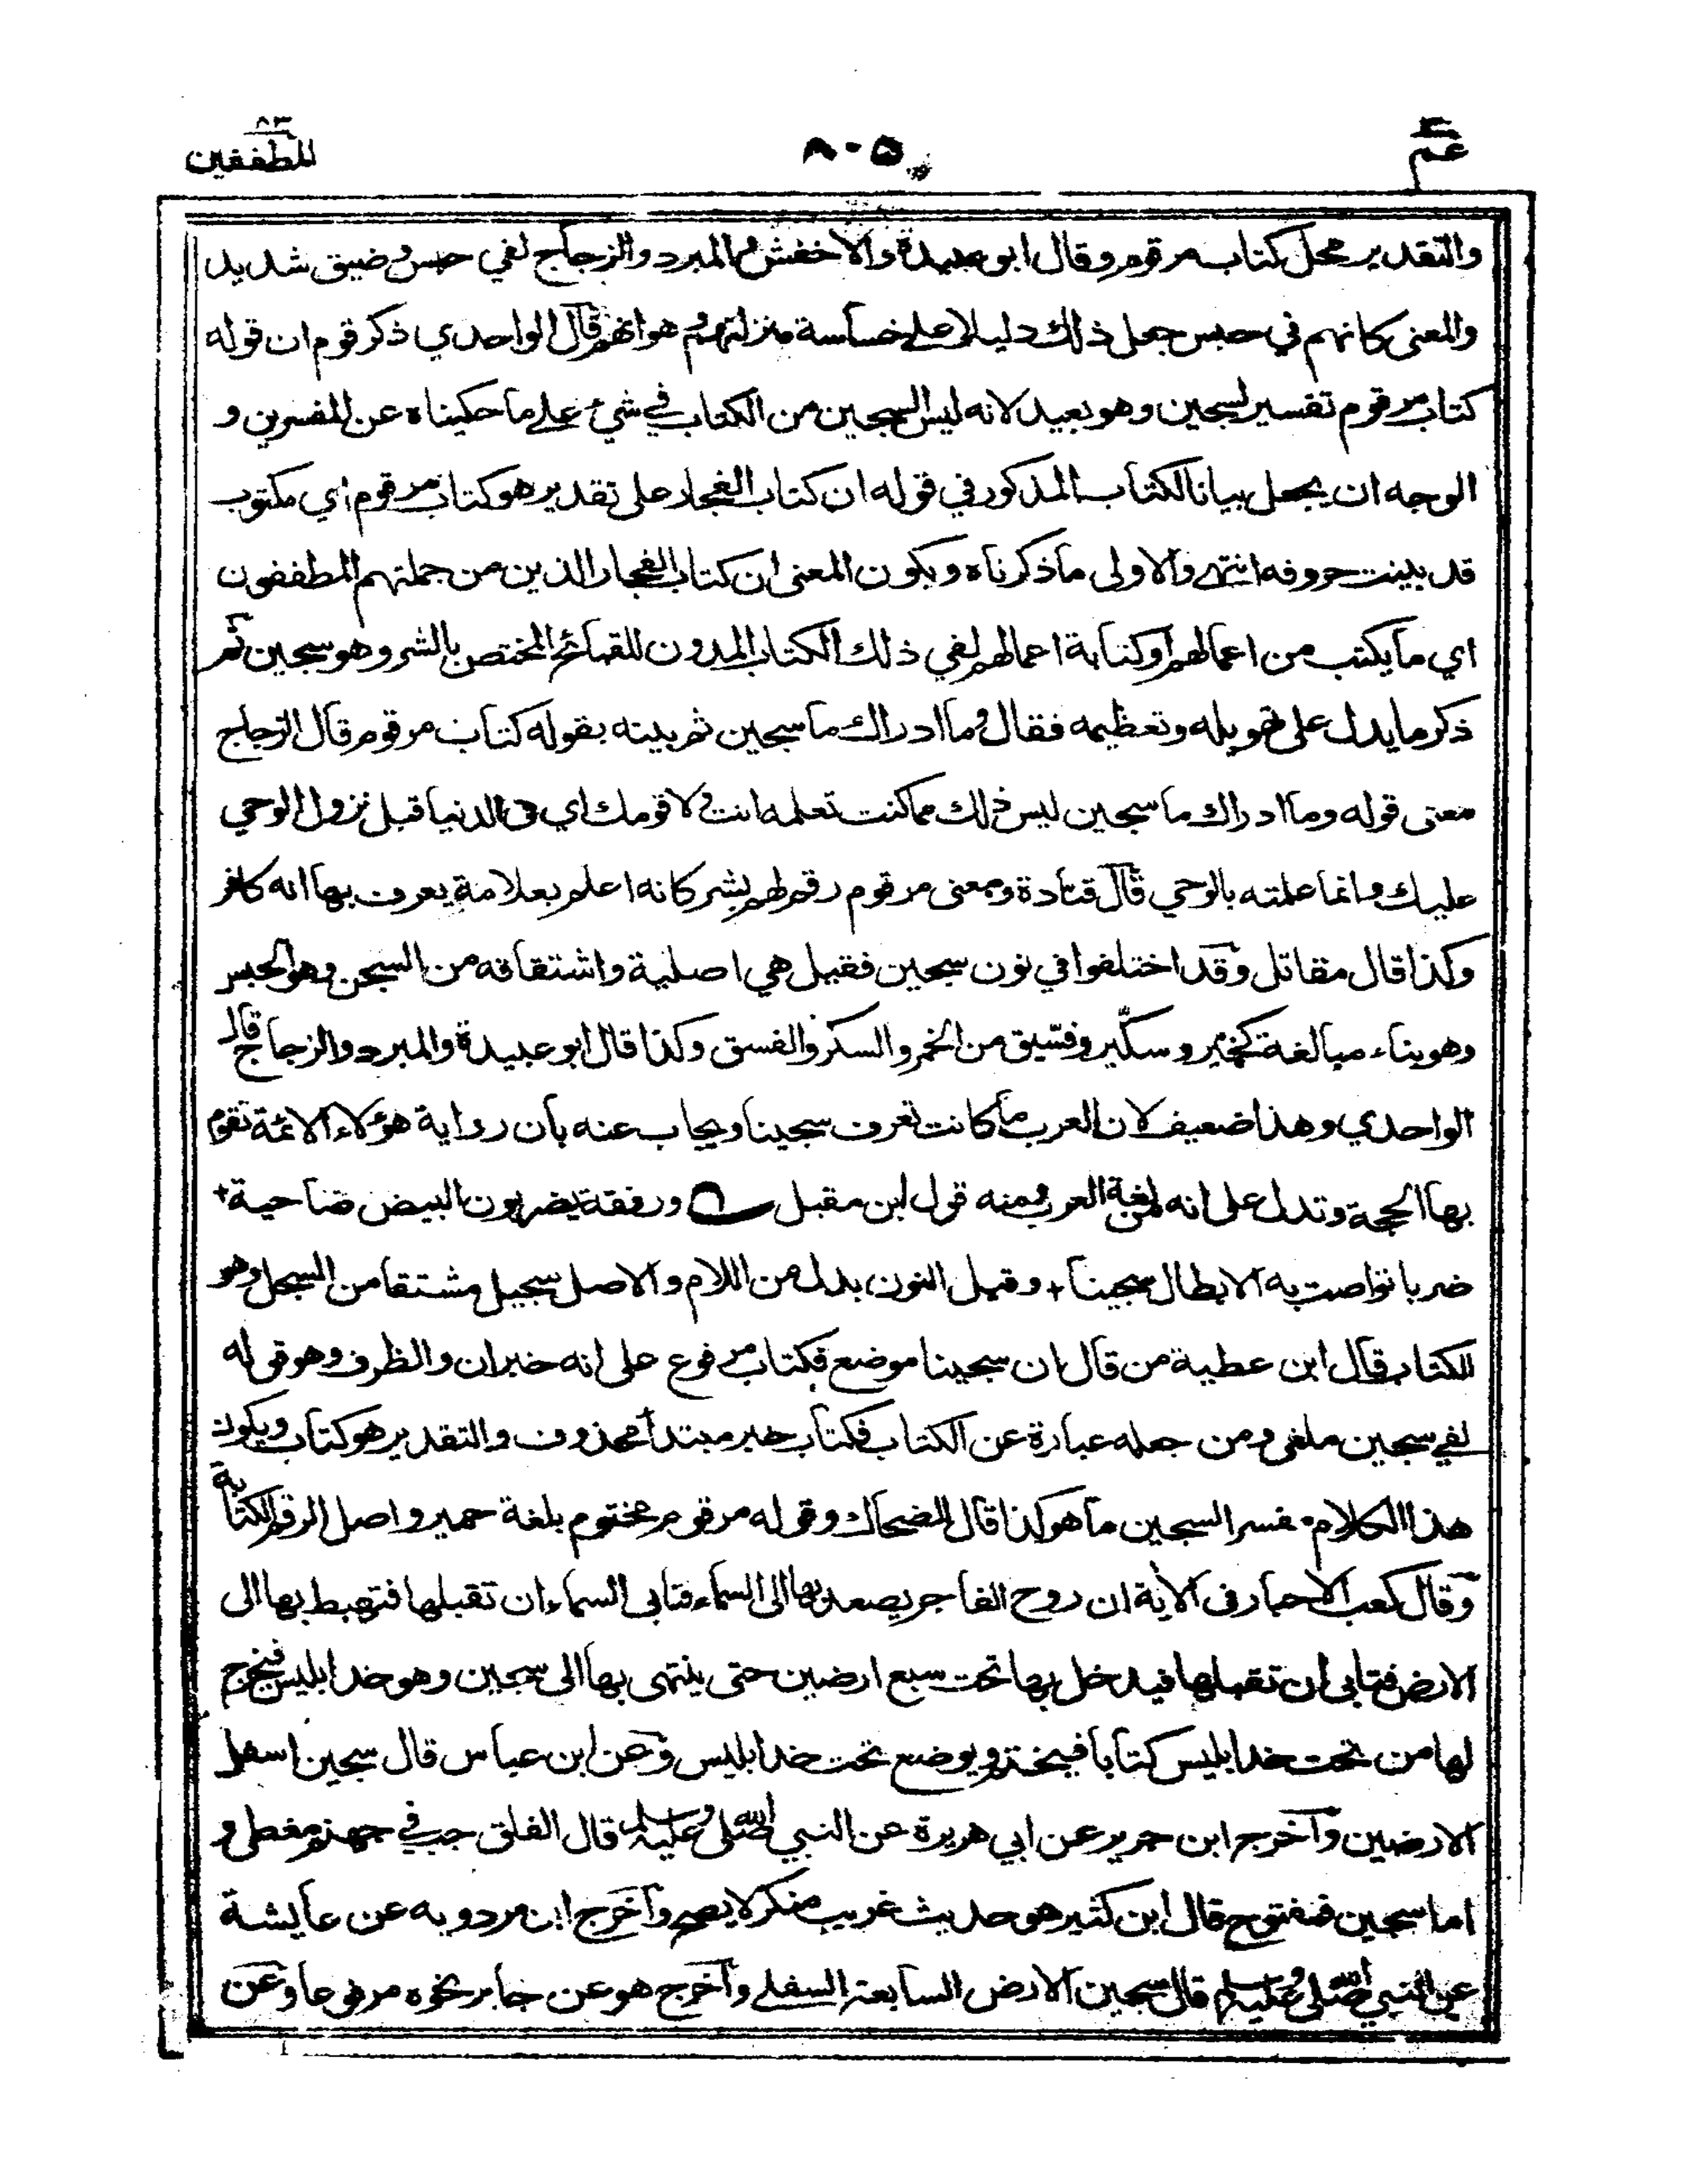 عم
٨٠٥
٨٣
المطففين
والتقدير محل كتاب مرقوم وقال ابو عبيدة والاخفش والمبرد والزجاج لفي حبس وضيق شديد
والمعنى كانهم في حبس جعل ذلك دليلا على خساسة منزلتهم وهوانهم قال الواحدي ذكر قوم ان قوله
كتاب مرقوم تفسير لسجين وهو بعيد لانه ليس السجين من الكتاب في شيء على ما حكيناه عن المفسرين و
الوجه ان يجعل بيانا للكتاب المذكور في قوله ان كتاب الفجار على تقدير هو كتاب مرقوم اي مكتوب
قد بينت حروفه انتهى والاولى ما ذكرناه ويكون المعنى ان كتاب الفجار الذين من جملتهم المطففون
اي ما يكتب من اعمالهم او كتابة اعمالهم لفي ذلك الكتاب المدون للقبائح المختص بالشر وهو سجين ثم
ذكر ما يدل على تهويله وتعظيمه فقال وما ادراك ما سجين ثم بينه بقوله كتاب مرقوم قال الزجاج
معنى قوله وما ادراك ما سجين ليس ذلك مما كنت تعلمه انت ولا قومك اي في الدنيا قبل نزول الوحي
عليك وانما علمته بالوحي قال قتادة ومعنى مرقوم رقم لهم بشر كانه اعلم بعلامة يعرف بها انه كافر
وكذا قال مقاتل وقد اختلفوا في نون سجين فقيل هي اصلية واشتقاقه من السجن وهو الحبس
وهو بناء مبالغة كخمير وسكّير وفسّيق من الخمر والسكر والفسق وكذا قال ابو عبيدة والمبرد والزجاج قال
الواحدي وهذا ضعيف لان العرب ما كانت تعرف سجينا ويجاب عنه بان رواية هؤلاء الائمة تقوم
بها الحجة وتدل على انه من لغة العرب ومنه قول ابن مقبل ورفقة يضربون البيض ضاحية +
ضربا تواصت به الابطال سجينا + وقيل النون بدل من اللام والاصل سجيل مشتقا من السجل وهو
الكتاب قال ابن عطية من قال ان سجينا موضع فكتاب مرفوع على انه خبر ان والظرف وهو قوله
لفي سجين ملغى ومن جعله عبارة عن الكتاب فكتاب خبر مبتدأ محذوف والتقدير هو كتاب ويكون
هذا الكلام مفسر السجين ما هو كذا قال الضحاك وقوله مرقوم مختوم بلغة حمير واصل الرقم الكتابة
وقال كعب الاحبار في الآية ان روح الفاجر يصعد بها الى السماء فتابى السماء ان تقبلها فتهبط بها الى
الارض فتابى ان تقبلها فيدخل بها تحت سبع ارضين حتى ينتهى بها الى سجين وهو خد ابليس فيخرج
لها من تحت خد ابليس كتابا فيختم ويوضع تحت خد ابليس وعن ابن عباس قال سجين اسفل
الارضين وآخرج ابن جرير عن ابي هريرة عن النبي صلى الله عليه وسلم قال الفلق جب في جهنم مغطى و
اما سجين فمفتوح قال ابن كثير هو حديث غريب منكر لا يصح وآخرج ابن مردويه عن عايشة
عن النبي صلى الله عليه وسلم قال سجين الارض السابعة السفلى وآخرج هو عن جابر نحوه مرفوعا وعن